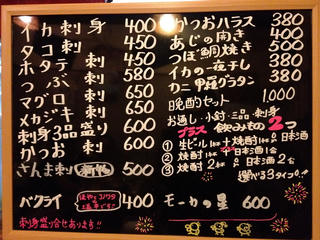 イカ刺身 400
イカ刺 450
タコ刺 450
ホタテ刺 580
つぶ刺 450
マグロ刺 650
メカジキ刺 600
刺身3品盛り 600
かつお刺
さんま刺 500
バクライ 400
刺身盛り合せあります!!
かつおハラス 380
あじの開き 400
つぼ鯛焼き 500
イカの一夜干し 380
カニ甲羅グラタン 380
晩酌セット 1,000
お通し・小付・三品・刺身
プラス 飲みもの2コ
① 生ビール1杯+焼酎1杯
② 焼酎1杯+日本酒1合
③ 焼酎2杯 日本酒2合
選べる3タイプ!!
モーカの星 600